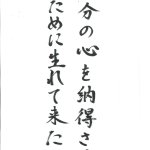 分の心を納得さ
ために生れて来た